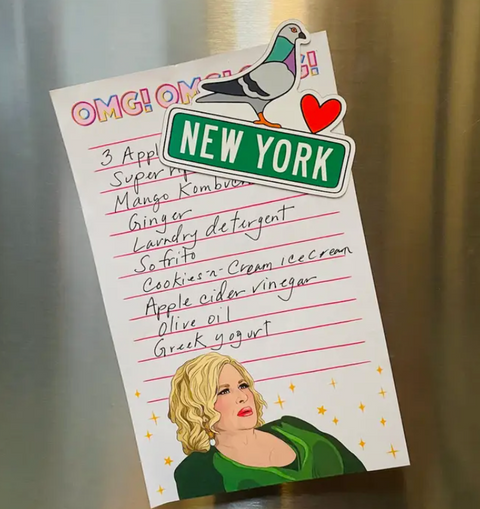 OMG! OMG! OMG!
NEW YORK
3 Appl
Super rip
Mango Kombucha
Ginger
Laundry detergent
Sofrito
Cookies-n-Cream ice cream
Apple cider vinegar
Olive oil
Greek yogurt